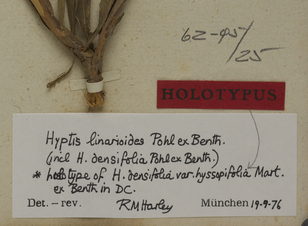 62-95/25
HOLOTYPUS
Hyptis linarioides Pohl ex Benth.
(incl H. densifolia Pohl ex Benth.)
* holotype of H. densifolia var. hyssopifolia Mart.
ex Benth in DC.
Det. – rev. RM Harley München 19-9-76